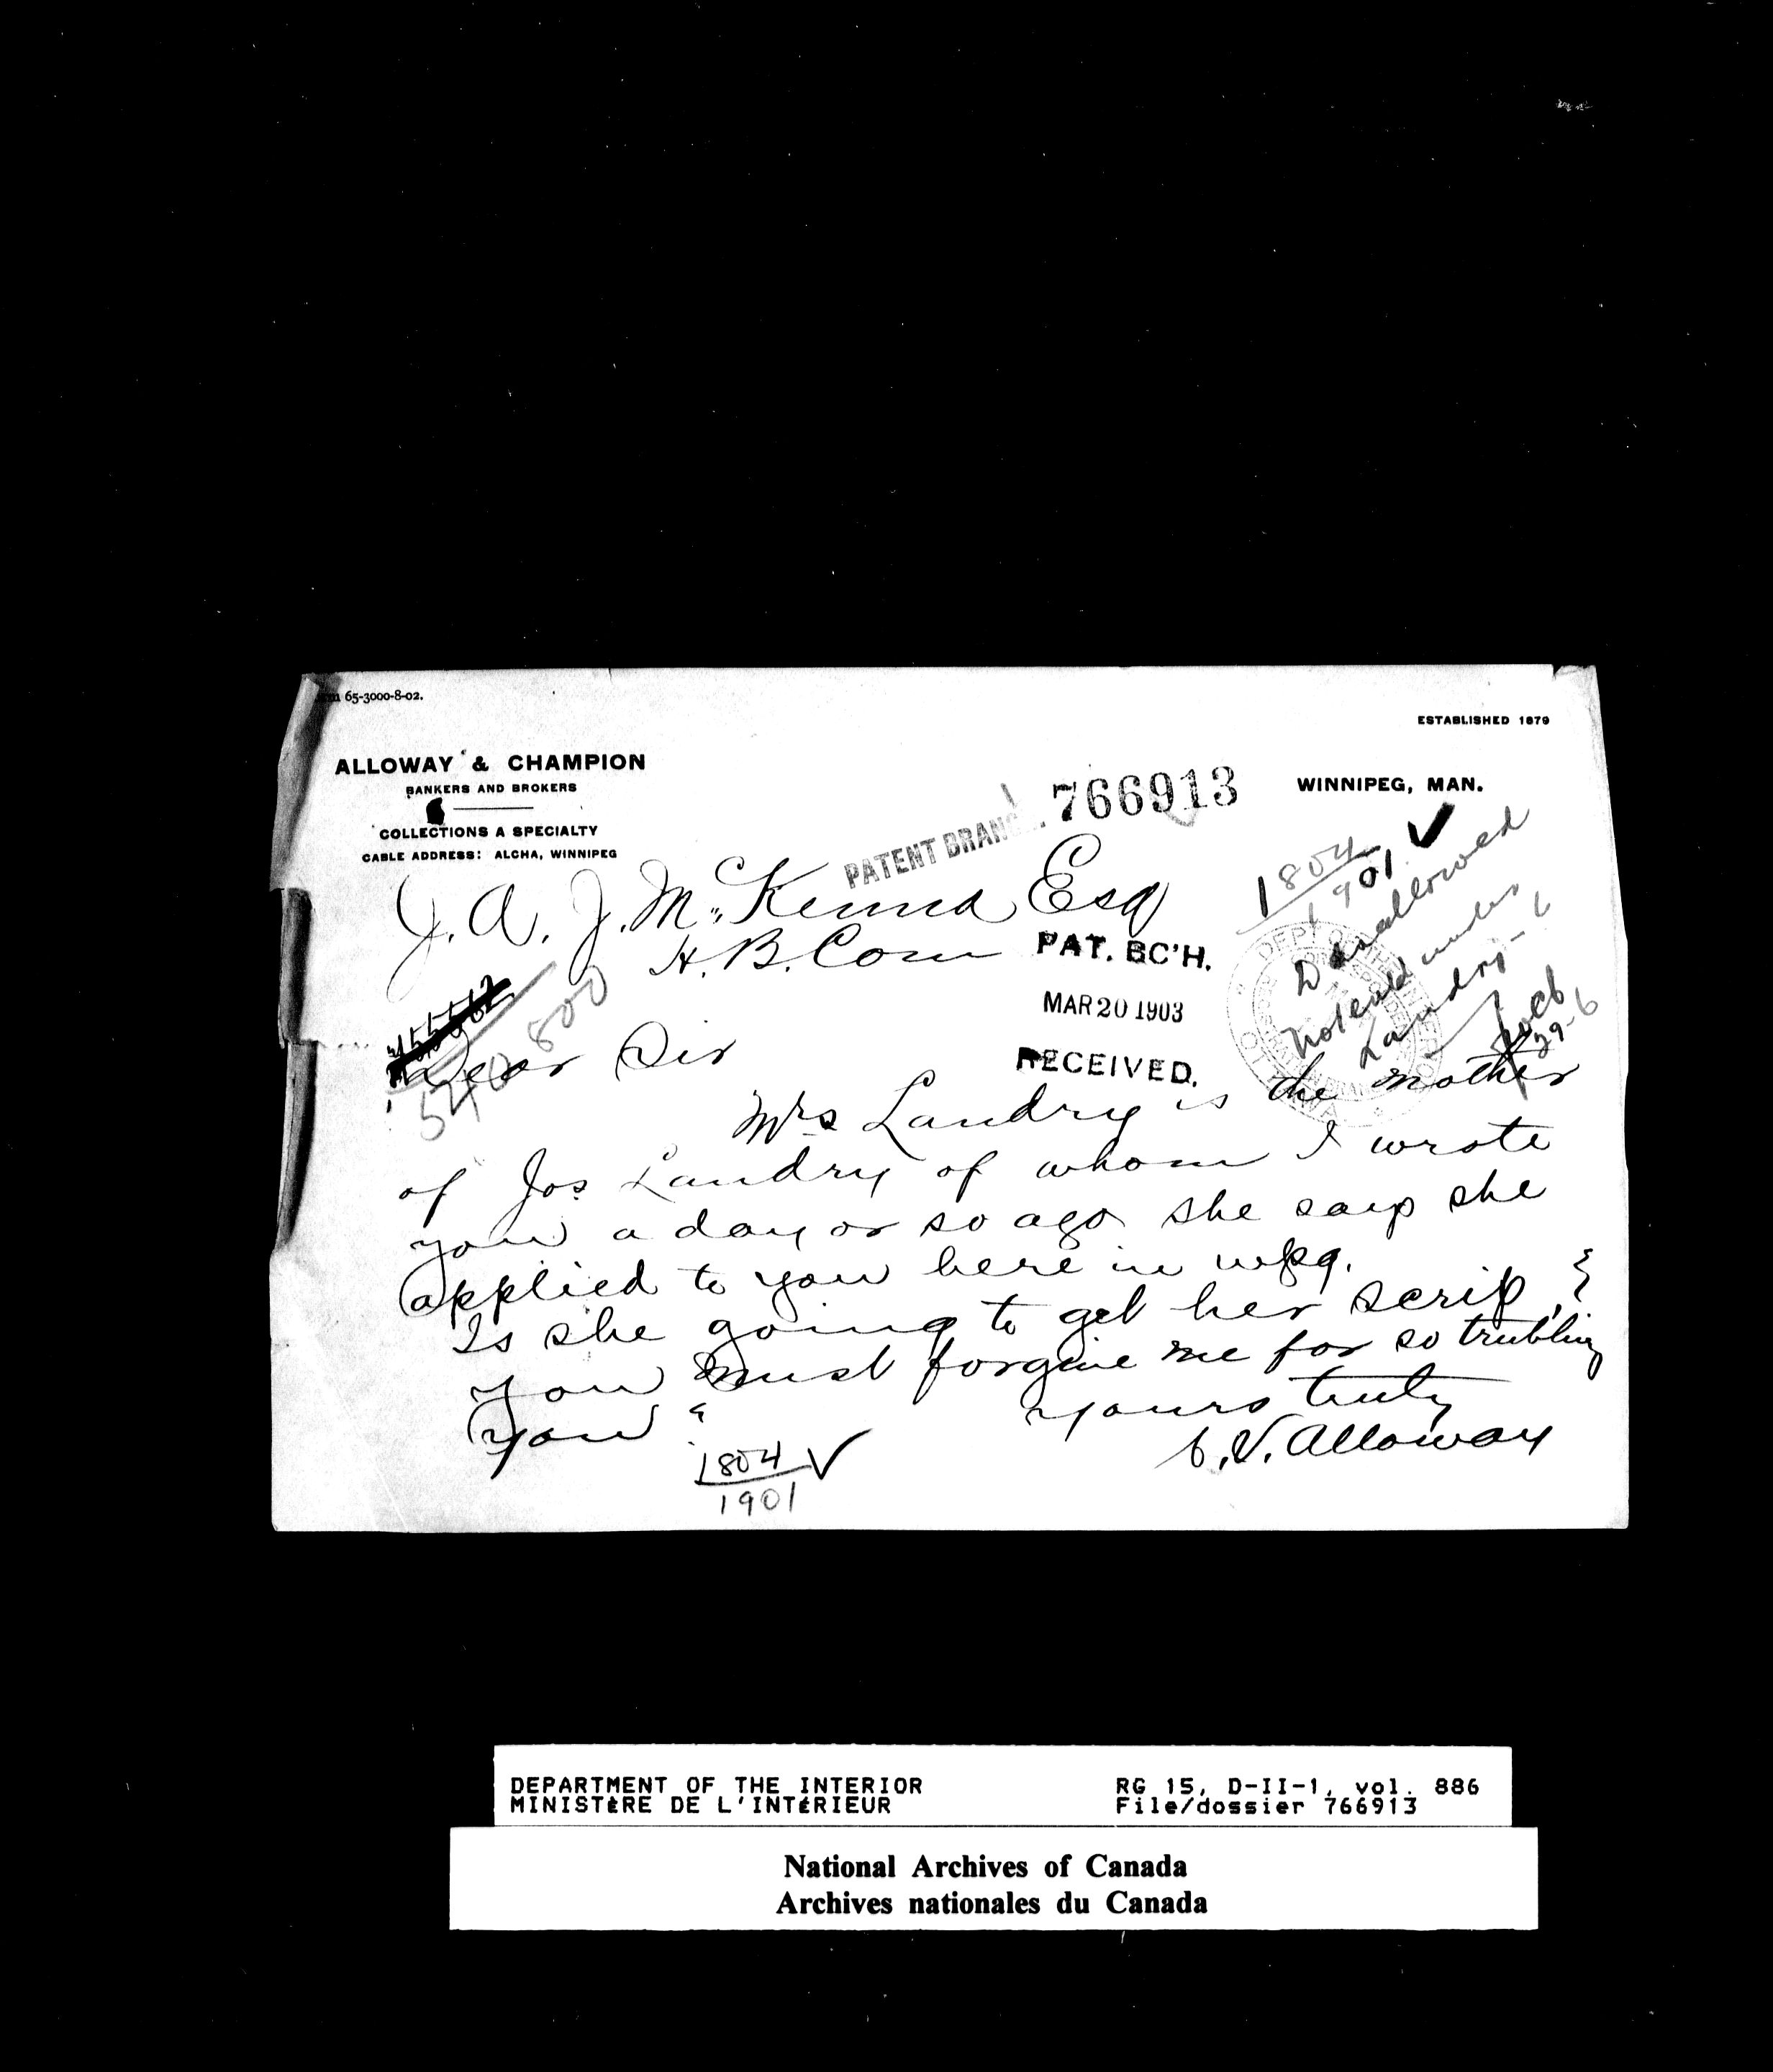 65-3000-8-02.
ESTABLISHED 1879
ALLOWAY & CHAMPION
BANKERS AND BROKERS
COLLECTIONS A SPECIALTY
CABLE ADDRESS: ALCHA, WINNIPEG
WINNIPEG, MAN.
PATENT BRANC
766913
1804
1901
Disallowed
Noted under
Landry
J. A. J. McKenna Esq
H. B. Com
PAT. BC'H.
MAR 20 1903
RECEIVED.
540800
Dear Sir
Mrs Landry is the mother
of Jos Landry of whom I wrote
you a day or so ago she says she
applied to you here in wpg.
Is she going to get her scrip, &
you must forgive me for so trubling
you
yours truly
C. V. Alloway
1804
1901
DEPARTMENT OF THE INTERIOR
MINISTÈRE DE L'INTÉRIEUR
RG 15, D-II-1, vol. 886
File/dossier 766913
National Archives of Canada
Archives nationales du Canada